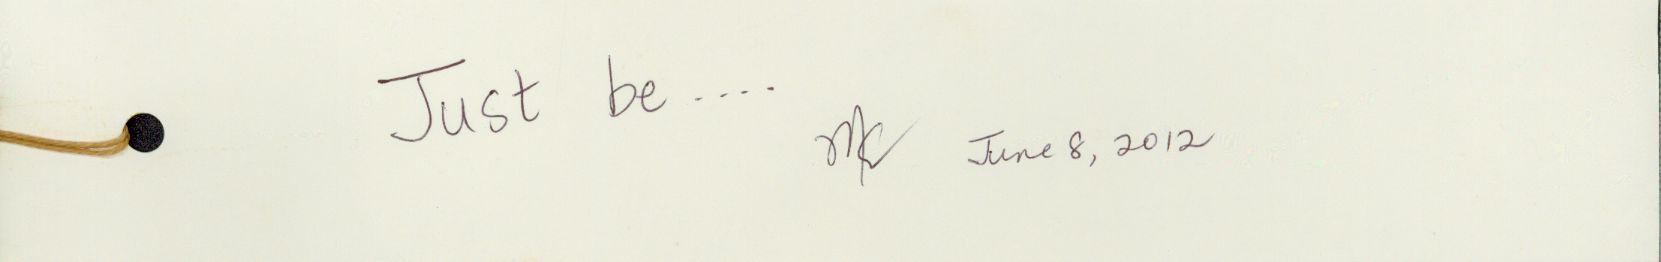 Just be ....
June 8, 2012